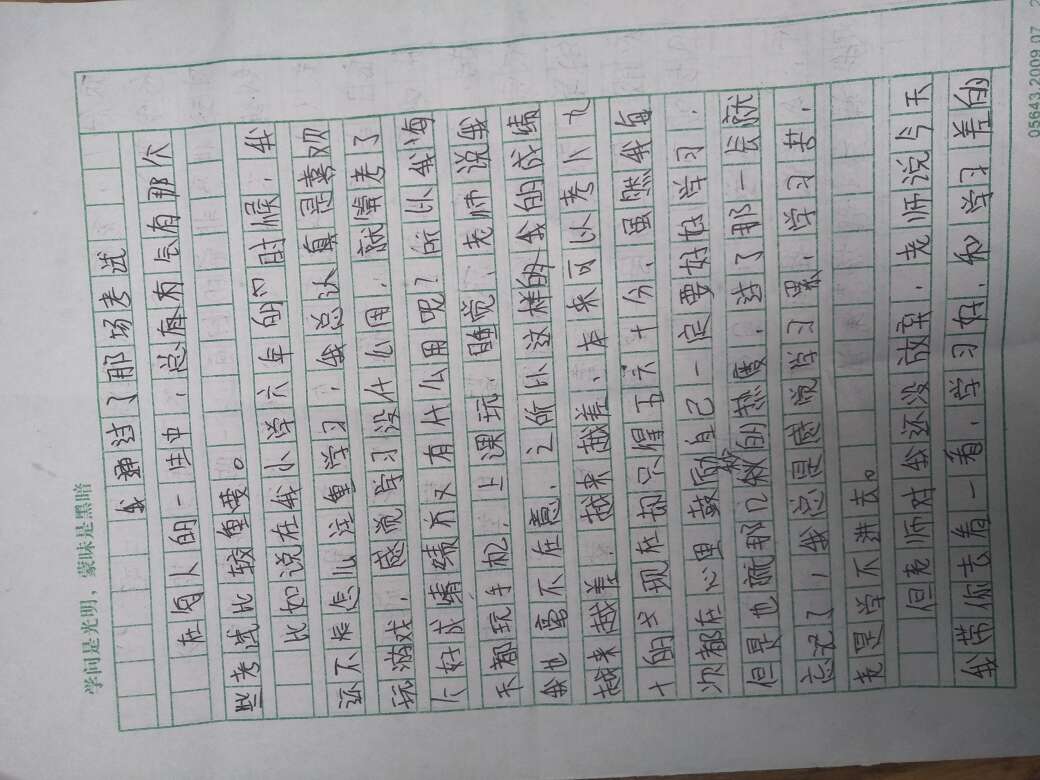 学问是光明，蒙昧是黑暗
我通过了那场考试
在每人的一生中，总有有会有那次
些考试比较重要。
比如说在我小学六年的四时候，我
还不是怎么注重学习，我总认真是喜欢
玩游戏，感觉学习没什么用，就算考了
个好成绩绩有又有什么用呢？所以我每
天都玩手机，上课玩，睡觉，老师说我
我也毫不在意，之所以这样的我的成绩
越来越差，越来越差，本来可以考八九
十的我现在却只得五六十分，虽然我每
次都在心里鼓励自己一定要好好学习，
但是也就那几秒的热度，过了那一会就
忘记了，我总是感觉学习累，学习苦，
老是学不进去。
但老师对我还没放弃，老师说今天
我带你去看一看，学习好，和学习差的
05643.2009.07